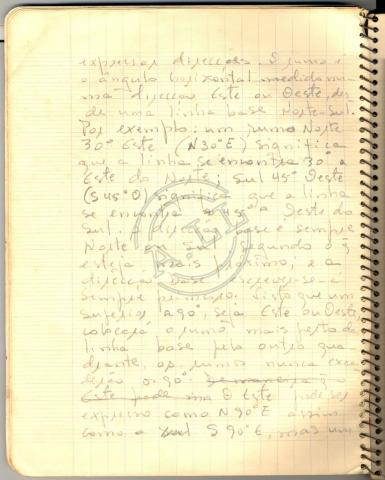 expressar direcções. O rumo é
o ângulo horizontal medido nu-
ma direcção Este ou Oeste, des-
de uma linha base Norte-Sul.
Por exemplo: um rumo Norte
30° Este (N30°E) significa
que a linha se encontra 30° a
Este do Norte; Sul 45° Oeste
(S45°O) significa que a linha
se encontra a 45° a Oeste do
Sul. A direcção base é sempre
Norte ou Sul segundo o q
esteja mais próximo; e a
direcção base escreve-se
sempre primeiro. Visto que um
superior a 90°, seja Este ou Oeste
colocará o rumo mais perto da
linha base pelo outro qua-
drante, os rumos nunca exce-
derão os 90°.
Este pode O Este pode ser
expresso como N90°E assim
como a S90°E, mas um
ALI